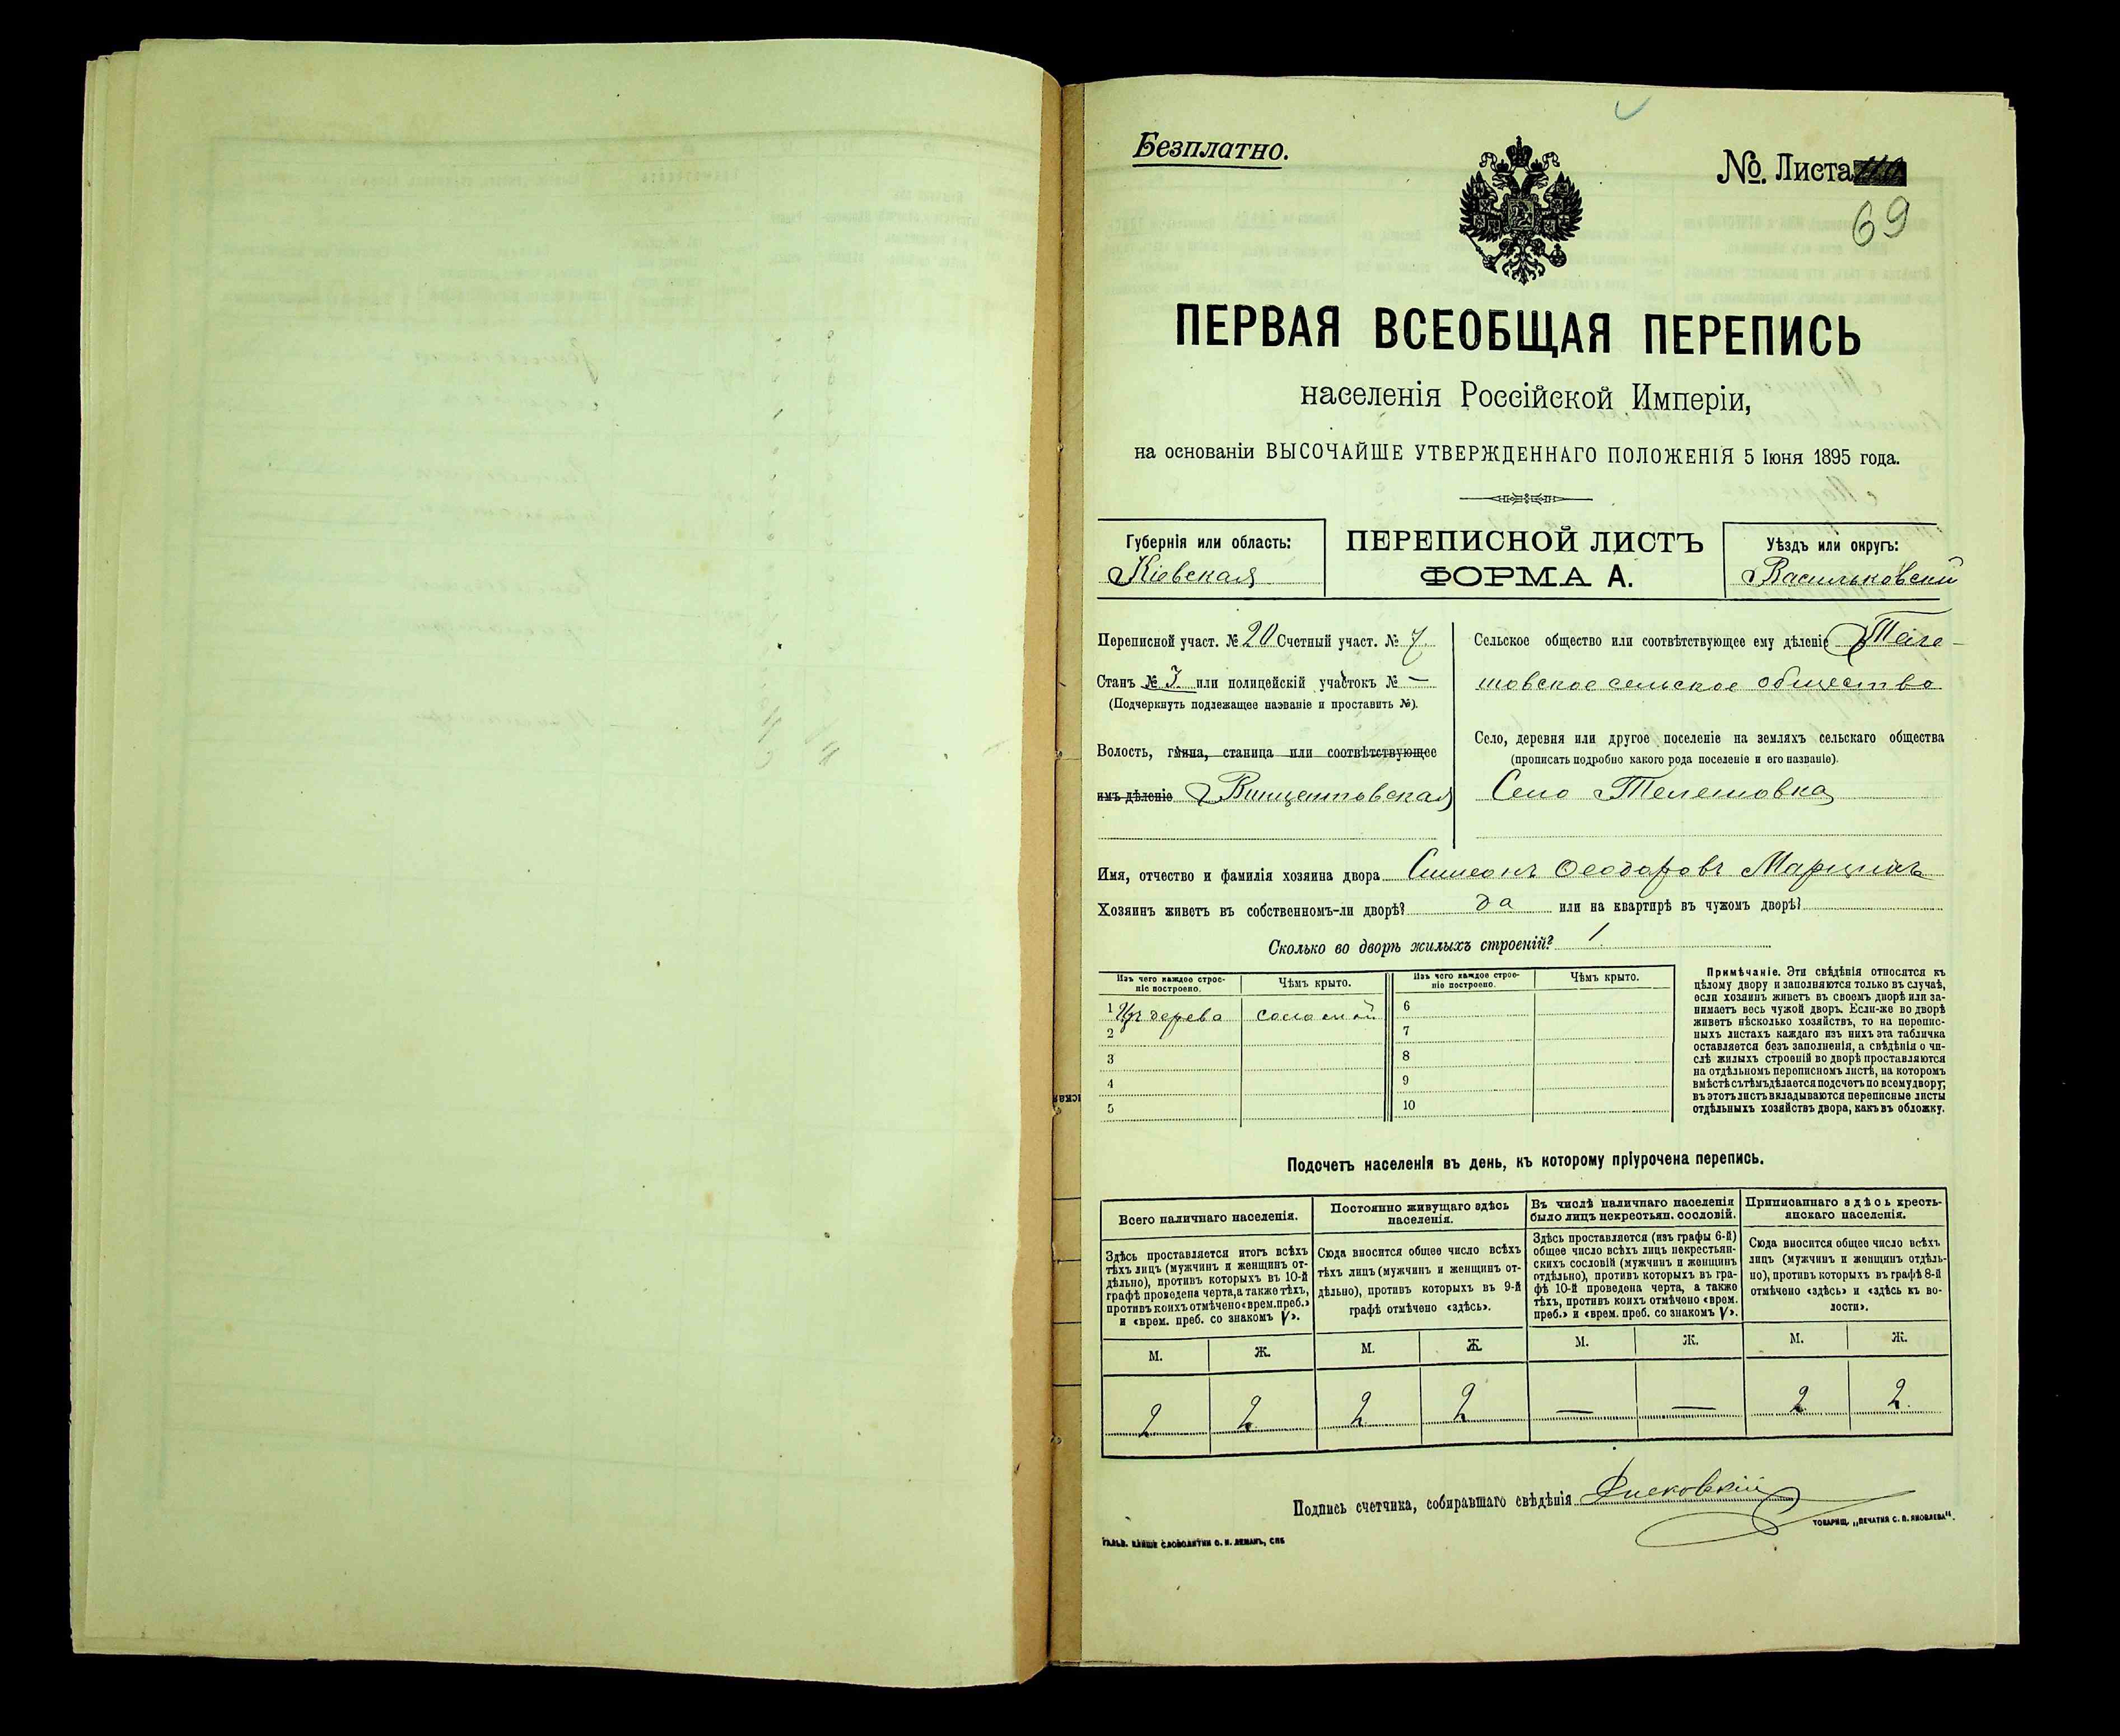 Безплатно.
№. Листа
69
ПЕРВАЯ ВСЕОБЩАЯ ПЕРЕПИСЬ
населенія Россійской Имперіи,
на основаніи ВЫСОЧАЙШЕ УТВЕРЖДЕННАГО ПОЛОЖЕНІЯ 5 Іюня 1895 года.
Губернія или область:
Кіевская
ПЕРЕПИСНОЙ ЛИСТЪ
ФОРМА А.
Уѣздъ или округъ:
Васильковскій
Переписной участ. № 20 Счетный участ. № 7
Станъ № 3. или полицейскій участокъ № —
(Подчеркнуть подлежащее названіе и проставить №).
Волость, гмина, станица или соотвѣтствующее
имъ дѣленіе Винцентовская
Сельское общество или соотвѣтствующее ему дѣленіе Теле-
шовское сельское общество
Село, деревня или другое поселеніе на земляхъ сельскаго общества
(прописать подробно какого рода поселеніе и его названіе).
Село Телешовка
Имя, отчество и фамилія хозяина двора Симеонъ Ѳеодоровъ Марцинъ
Хозяинъ живетъ въ собственномъ-ли дворѣ? да или на квартирѣ въ чужомъ дворѣ?
Сколько во дворѣ жилыхъ строеній? 1.
Изъ чего каждое строе-
ніе построено.
Чѣмъ крыто.
1 Изъ дерева соломой
2
3
4
5
Изъ чего каждое строе-
ніе построено.
Чѣмъ крыто.
6
7
8
9
10
Примѣчаніе. Эти свѣдѣнія относятся къ
цѣлому двору и заполняются только въ случаѣ,
если хозяинъ живетъ въ своемъ дворѣ или за-
нимаетъ весь чужой дворъ. Если-же во дворѣ
живетъ нѣсколько хозяйствъ, то на перепис-
ныхъ листахъ каждаго изъ нихъ эта табличка
оставляется безъ заполненія, а свѣдѣнія о чи-
слѣ жилыхъ строеній во дворѣ проставляются
на отдѣльномъ переписномъ листѣ, на которомъ
вмѣстѣ съ тѣмъ дѣлается подсчетъ по всему двору;
въ этотъ листъ вкладываются переписные листы
отдѣльныхъ хозяйствъ двора, какъ въ обложку.
Подсчетъ населенія въ день, къ которому пріурочена перепись.
Всего наличнаго населенія.
Здѣсь проставляется итогъ всѣхъ
тѣхъ лицъ (мужчинъ и женщинъ от-
дѣльно), противъ которыхъ въ 10-й
графѣ проведена черта, а также тѣхъ,
противъ коихъ отмѣчено «врем. преб.»
и «врем. преб. со знакомъ V».
М. Ж.
2 2
Постоянно живущаго здѣсь
населенія.
Сюда вносится общее число всѣхъ
тѣхъ лицъ (мужчинъ и женщинъ от-
дѣльно), противъ которыхъ въ 9-й
графѣ отмѣчено «здѣсь».
М. Ж.
2 2
Въ числѣ наличнаго населенія
было лицъ некрестьян. сословій.
Здѣсь проставляется (изъ графы 6-й)
общее число всѣхъ лицъ некрестьян-
скихъ сословій (мужчинъ и женщинъ
отдѣльно), противъ которыхъ въ гра-
фѣ 10-й проведена черта, а также
тѣхъ, противъ коихъ отмѣчено «врем.
преб.» и «врем. преб. со знакомъ V».
М. Ж.
— —
Приписаннаго здѣсь кресть-
янскаго населенія.
Сюда вносится общее число всѣхъ
лицъ (мужчинъ и женщинъ отдѣль-
но), противъ которыхъ въ графѣ 8-й
отмѣчено «здѣсь» и «здѣсь къ во-
лости».
М. Ж.
2 2.
Подпись счетчика, собиравшаго свѣдѣнія
ТОВАРИЩ. „ПЕЧАТНЯ С. П. ЯКОВЛЕВА".
ГАЛЬВ. КЛИШЕ СЛОВОЛИТНИ О. И. ЛЕМАНЪ, СПБ